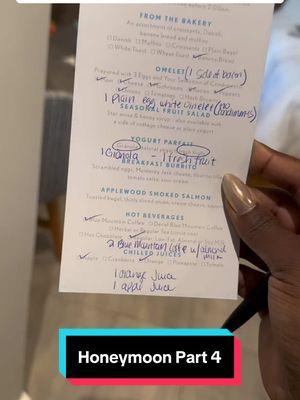 FROM THE BAKERY
An assortment of croissants, Danish,
banana bread and muffins
Danish Muffins Croissants Plain Bagel
White Toast Wheat Toast Banana Bread
OMELET (1 side of bacon)
Prepared with 3 Eggs and Your Selection of
Ham Cheese Mushrooms Bacon Peppers
Onions Tomatoes Hash Browns
1 plain egg white omelet (no
SEASONAL FRUIT SALAD
Star anise & honey syrup - also available with
a side of cottage cheese or plain yogurt
YOGURT PARFAIT
Granola
1 Granola - 1 fresh fruit
BREAKFAST BURRITO
Scrambled eggs, Monterey Jack cheese, flour tortilla,
tomato salsa, sour cream
APPLEWOOD SMOKED SALMON
Toasted bagel, thinly sliced onion, cream cheese, capers
HOT BEVERAGES
Blue Mountain Coffee Decaf Blue Mountain Coffee
Herbal or Regular Tea
Hot Chocolate Regular, Low Fat, Almond or Soy Milk
2 Blue Mountain Coffee w/ almond
milk
CHILLED JUICES
Apple Cranberry Orange Pineapple Tomato
1 orange juice
1 apple juice
Honeymoon Part 4